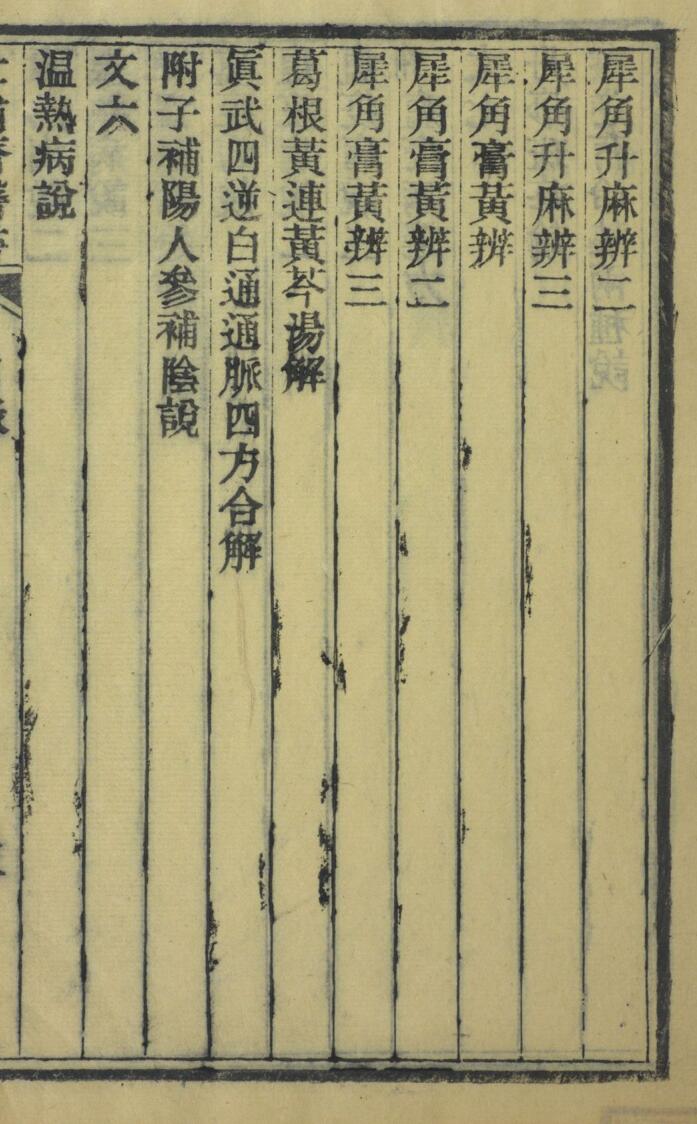 犀角升麻辨二
犀角升麻辨三
犀角膏黃辨
犀角膏黃辨二
犀角膏黃辨三
葛根黃連黃芩湯解
眞武四逆白通通脈四方合解
附子補陽人參補陰說
文六
温熱病說